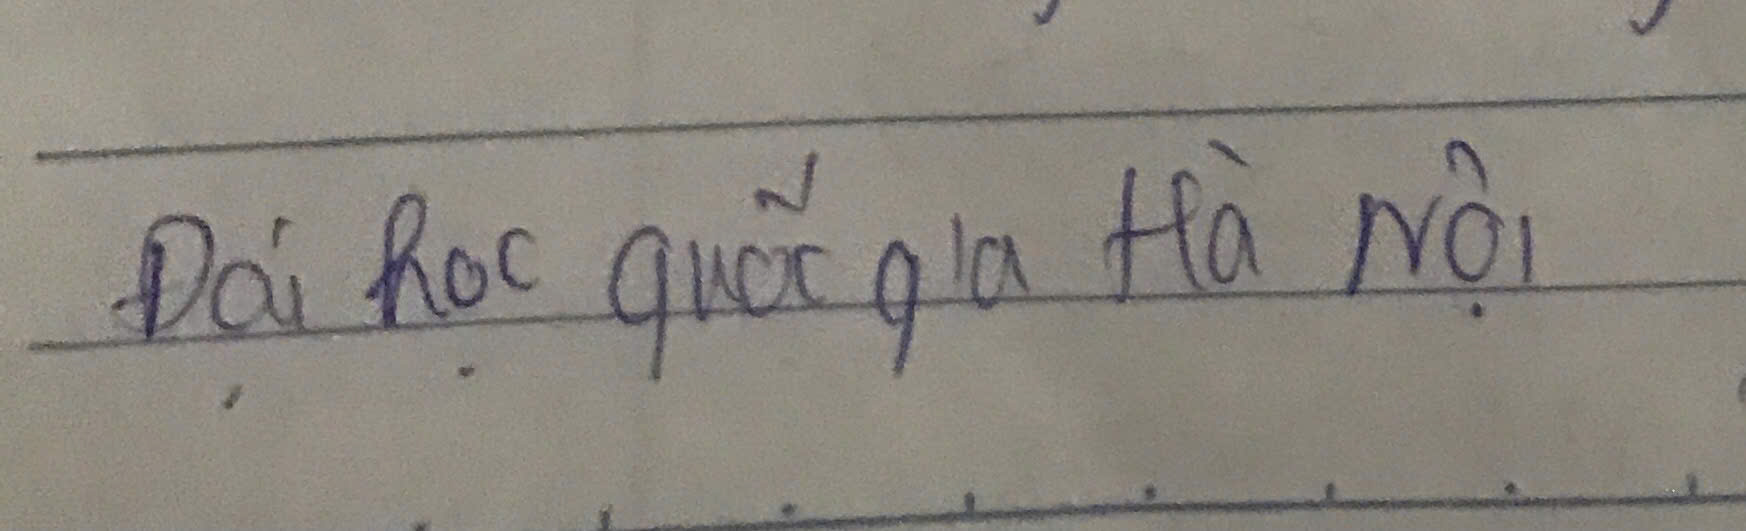 Đại học quốc gia Hà Nội